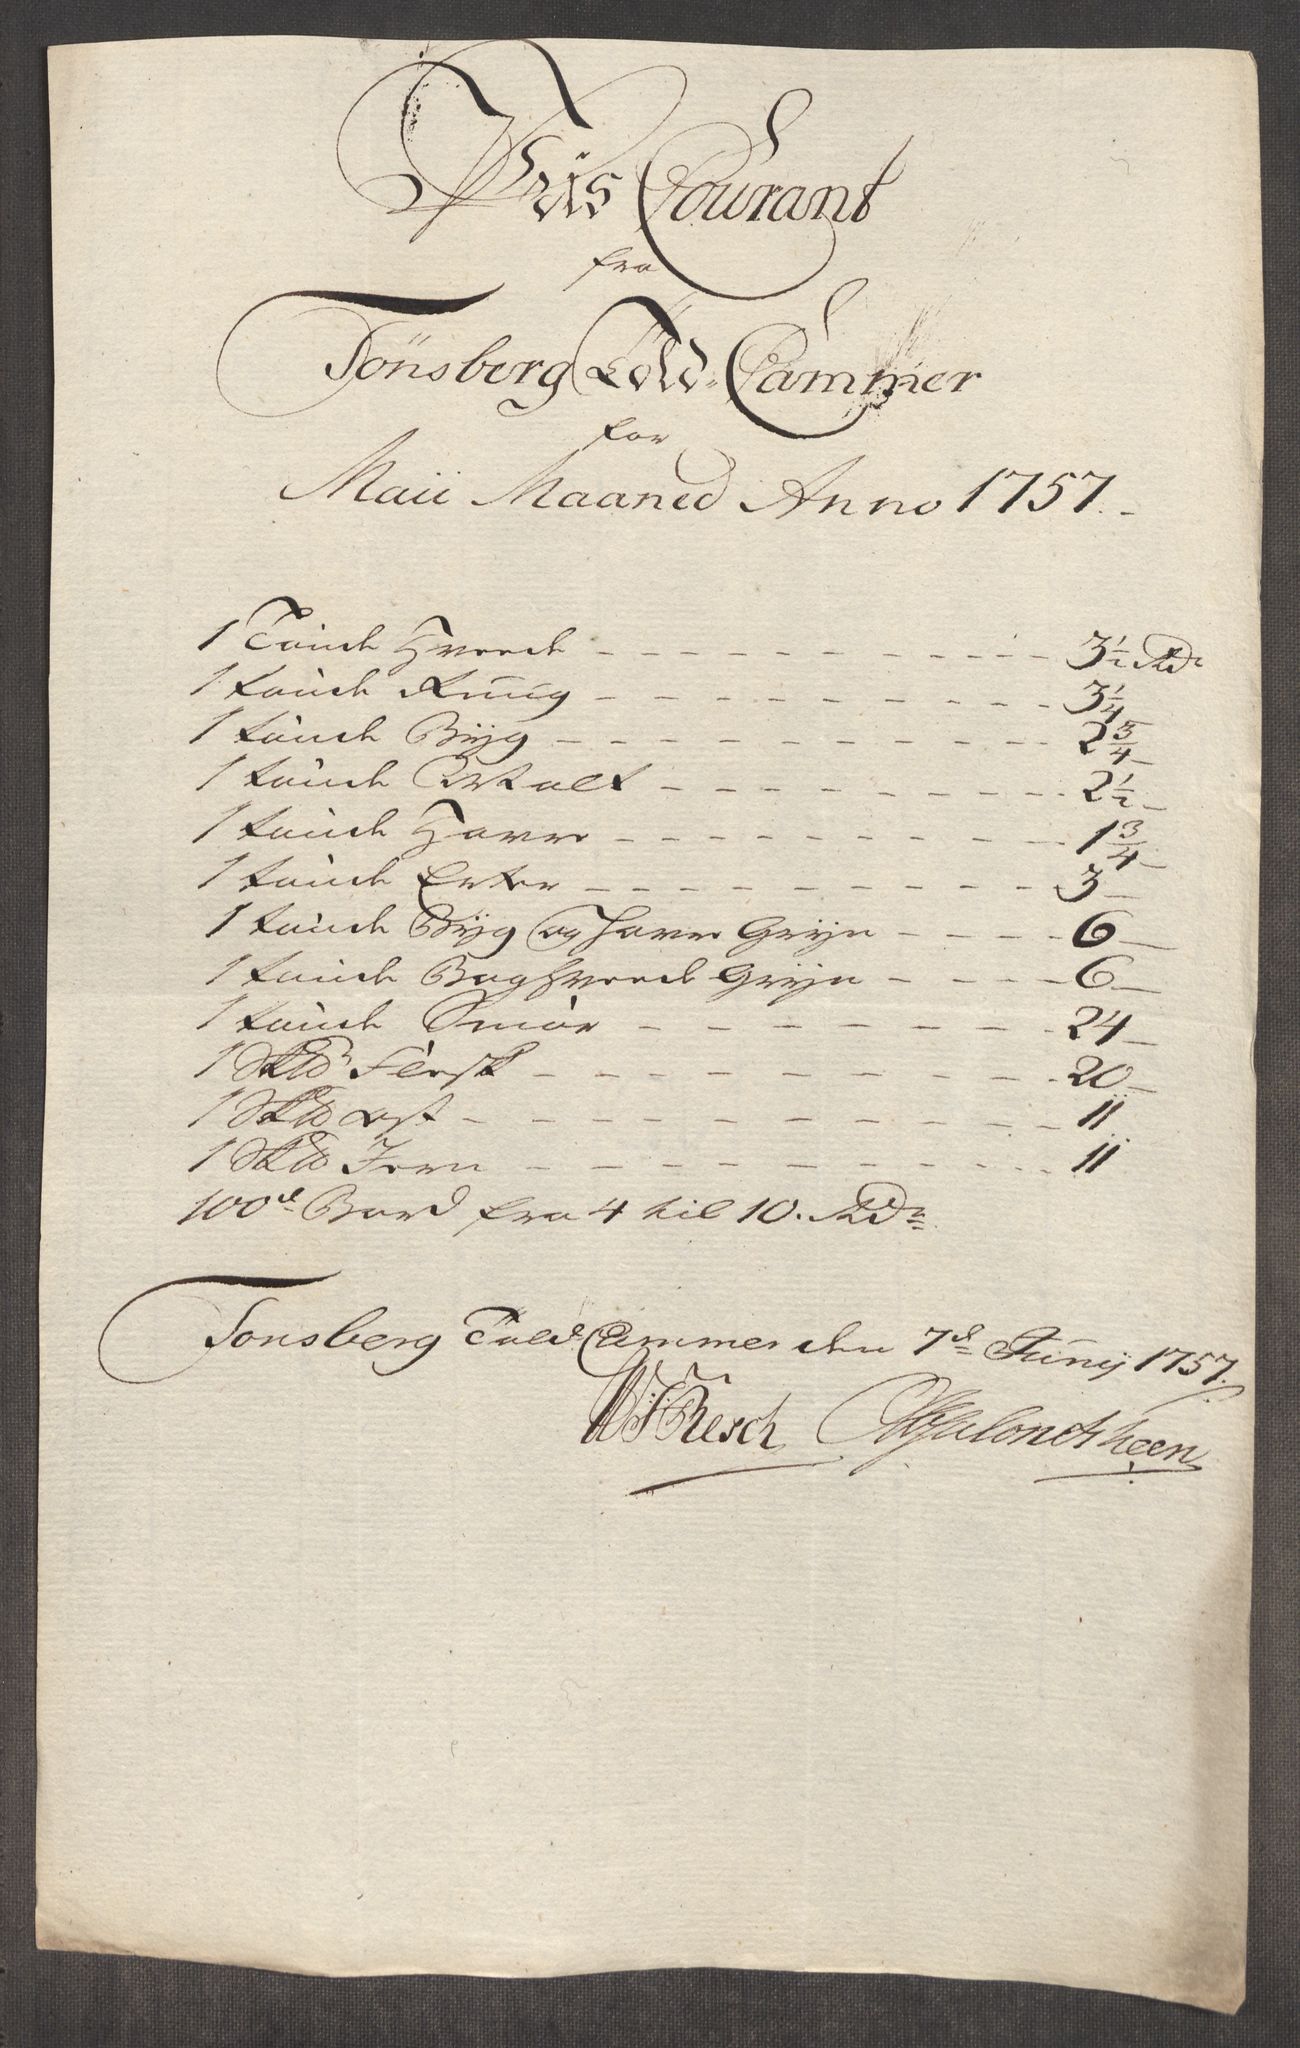 Priis Courant
fra
Tönsberg Told-Cammer
for
Maii Maaned Anno 1757.
1 Tönde Hvede - - - 3½ Rdr
1 tönde Rug - - - 3¼
1 tönde Byg - - - 2¾ -
1 tönde Malt - - - 2½ -
1 tönde Havre - - - 1¾ -
1 tönde Erter - - - 3 -
1 tönde Byg og Havre Gryn - - - 6 -
1 tönde Boghvede Gryn - - - 6 -
1 tönde Smör - - - 24 -
1 Sk℔ Flesk - - - 20 -
1 Sk℔ Ost - - - 11
1 Sk℔ Jern - - - 11
100de Bord fra 4 til 10. Rdr
Tonsberg Told Cammer den 7de Junij 1757.
Resch